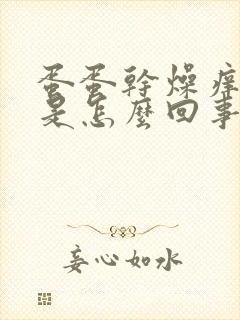 蛋蛋幹燥痒
是怎麼回事
妄心如水